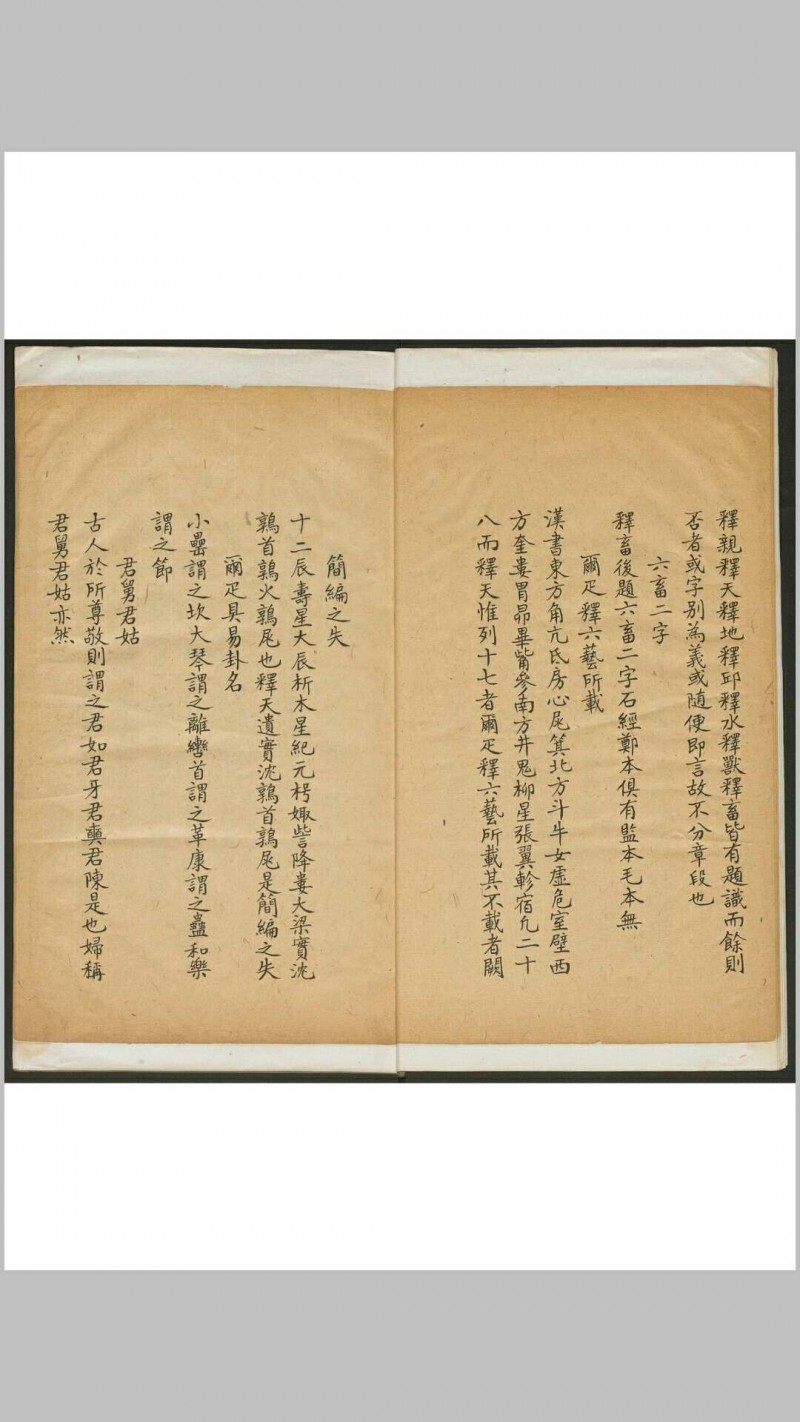 釋親釋天釋地釋邱釋水釋獸釋畜皆有題識而餘則
否者或字别為義或随便即言故不分章段也
六畜二字
釋畜後題六畜二字石經鄭本俱有監本毛本無
爾疋釋六藝所載
漢書東方角亢氐房心尾箕北方斗牛女虛危室壁西
方奎婁胃昴畢觜參南方井鬼柳星張翼軫宿凡二十
八而釋天惟列十七者爾疋釋六藝所載其不載者闕
簡編之失
十二辰壽星大辰析木星紀元枵娵訾降婁大梁實沈
鶉首鶉火鶉尾也釋天遺實沈鶉首鶉尾是簡編之失
爾疋具易卦名
小罍謂之坎大琴謂之離轡首謂之革康謂之蠱和樂
謂之節
君舅君姑
古人於所尊敬則謂之君如君牙君奭君陳是也婦稱
君舅君姑亦然